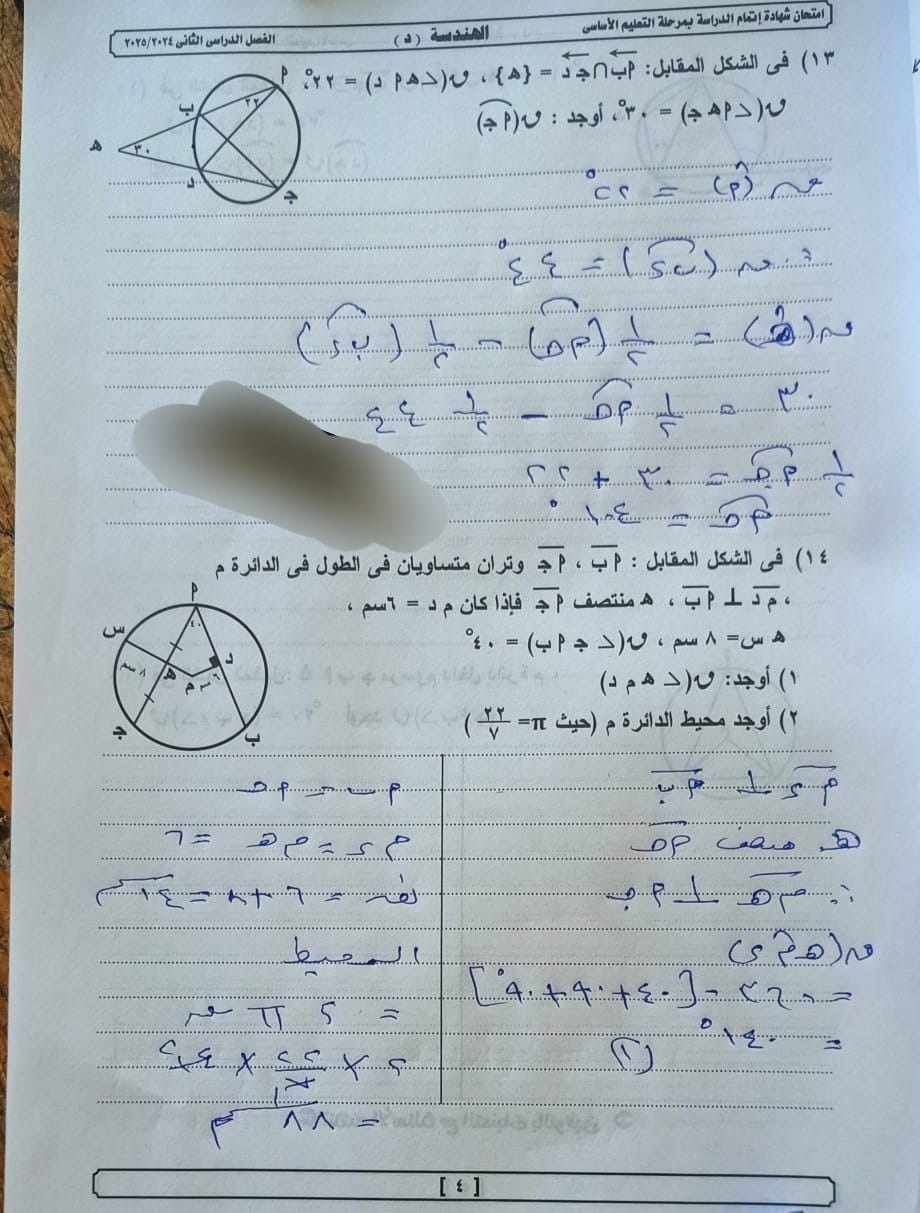 امتحان شهادة إتمام الدراسة بمرحلة التعليم الأساسى
الهندسة (د)
الفصل الدراسى الثانى ٢٠٢٥/٢٠٢٤
١٣) فى الشكل المقابل: أب ∩ جـ د = {هـ} ، ق(> هـ أ د) = ٢٢°،
ق(> أ هـ جـ) = ٣٠°، أوجد : ق(أ جـ)
أ
٢٢
ب
هـ
٣٠
د
جـ
ق (أ) = ٢٢°
∴ ق (ب د) = ٤٤°
ق (هـ) = ١/٢ (أ جـ) - ١/٢ (ب د)
٣٠ = ١/٢ أ جـ - ١/٢ ٤٤
١/٢ أ جـ = ٣٠ + ٢٢
أ جـ = ١٠٤°
١٤) فى الشكل المقابل : أب ، أجـ وتران متساويان فى الطول فى الدائرة م
، م د ⊥ أب ، هـ منتصف أجـ فإذا كان م د = ٦سم ،
هـ س= ٨ سم ، ق(> جـ أ ب) = ٤٠°
١) أوجد: ق(> هـ م د)
٢) أوجد محيط الدائرة م (حيث π= ٢٢/٧)
أ
٤٠
س
٨ سم
د
هـ
م
٦
جـ
ب
م د ⊥ أ ب
هـ منتصف أ جـ
∴ م هـ ⊥ أ جـ
ق (هـ م د)
= ٣٦٠ - [٤٠ + ٩٠ + ٩٠°]
= ١٤٠° (١)
أ ب = أ جـ
م د = م هـ = ٦
نق = ٦ + ٨ = ١٤ سم
المحيط
= ٢ π نق
= ٢ × ٢٢/٧ × ١٤
= ٨٨ سم
[ ٤ ]